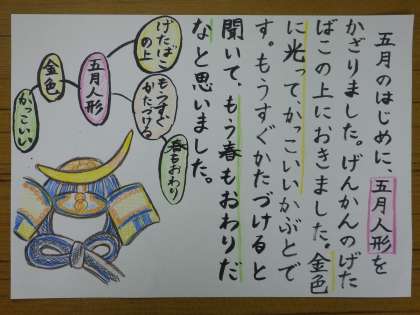 五月のはじめに、五月人形を
かざりました。げんかんのげた
ばこの上におきました。金色
に光って、かっこいいかぶとで
す。もうすぐかたづけると
聞いて、もう春もおわりだ
なと思いました。
げたばこ
の上
五月人形
金色
かっこいい
もうすぐ
かたづける
春もおわり